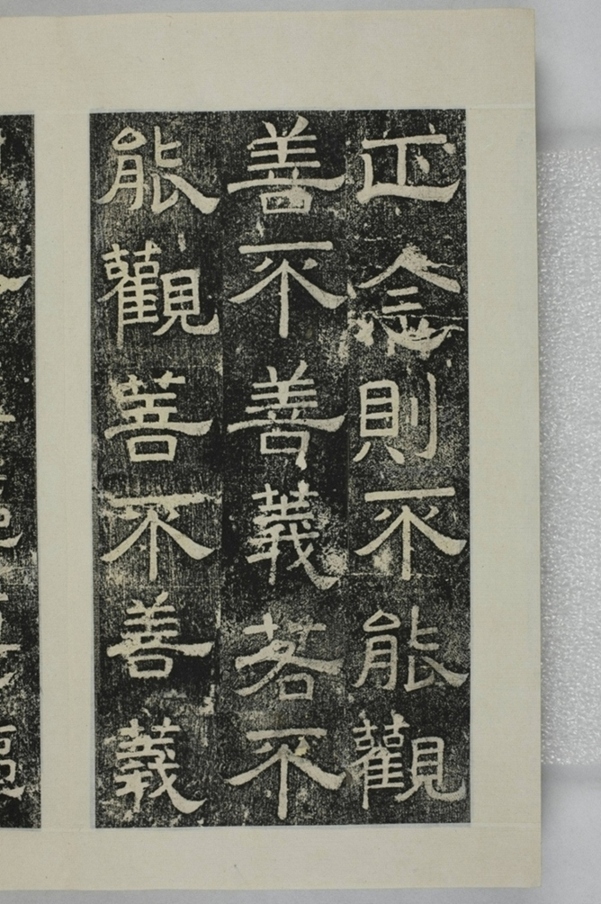 正念則不能觀
善不善義若不
能觀善不善義